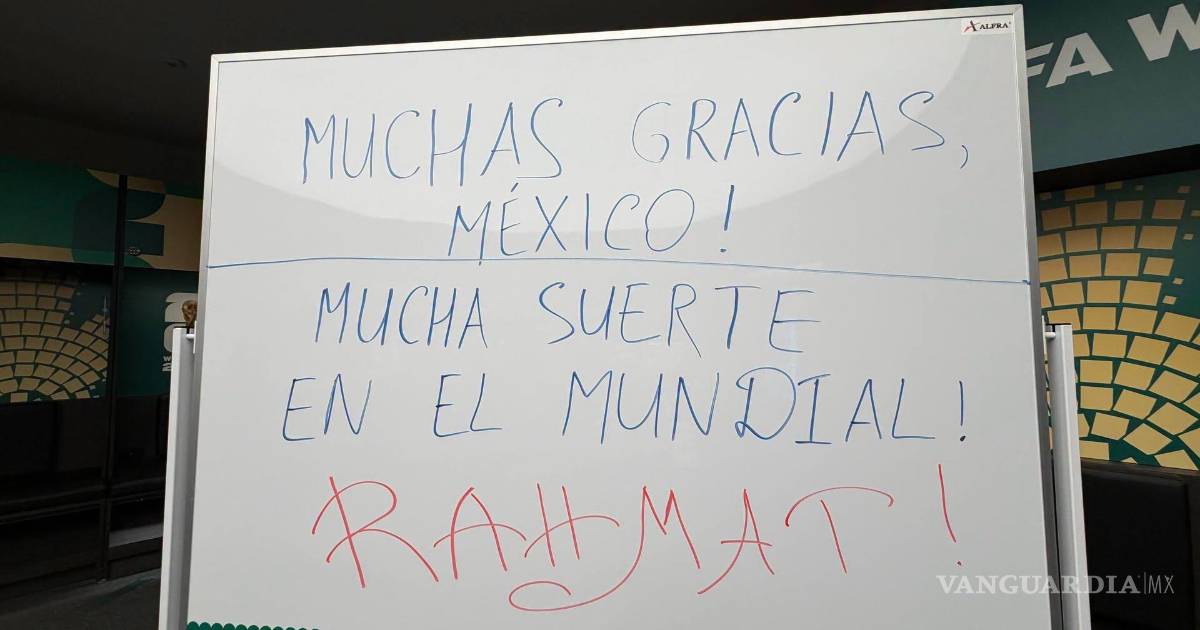 ALFRA
FA W
MUCHAS GRACIAS,
MÉXICO!
MUCHA SUERTE
EN EL MUNDIAL!
RAHMAT!
VANGUARDIA|MX